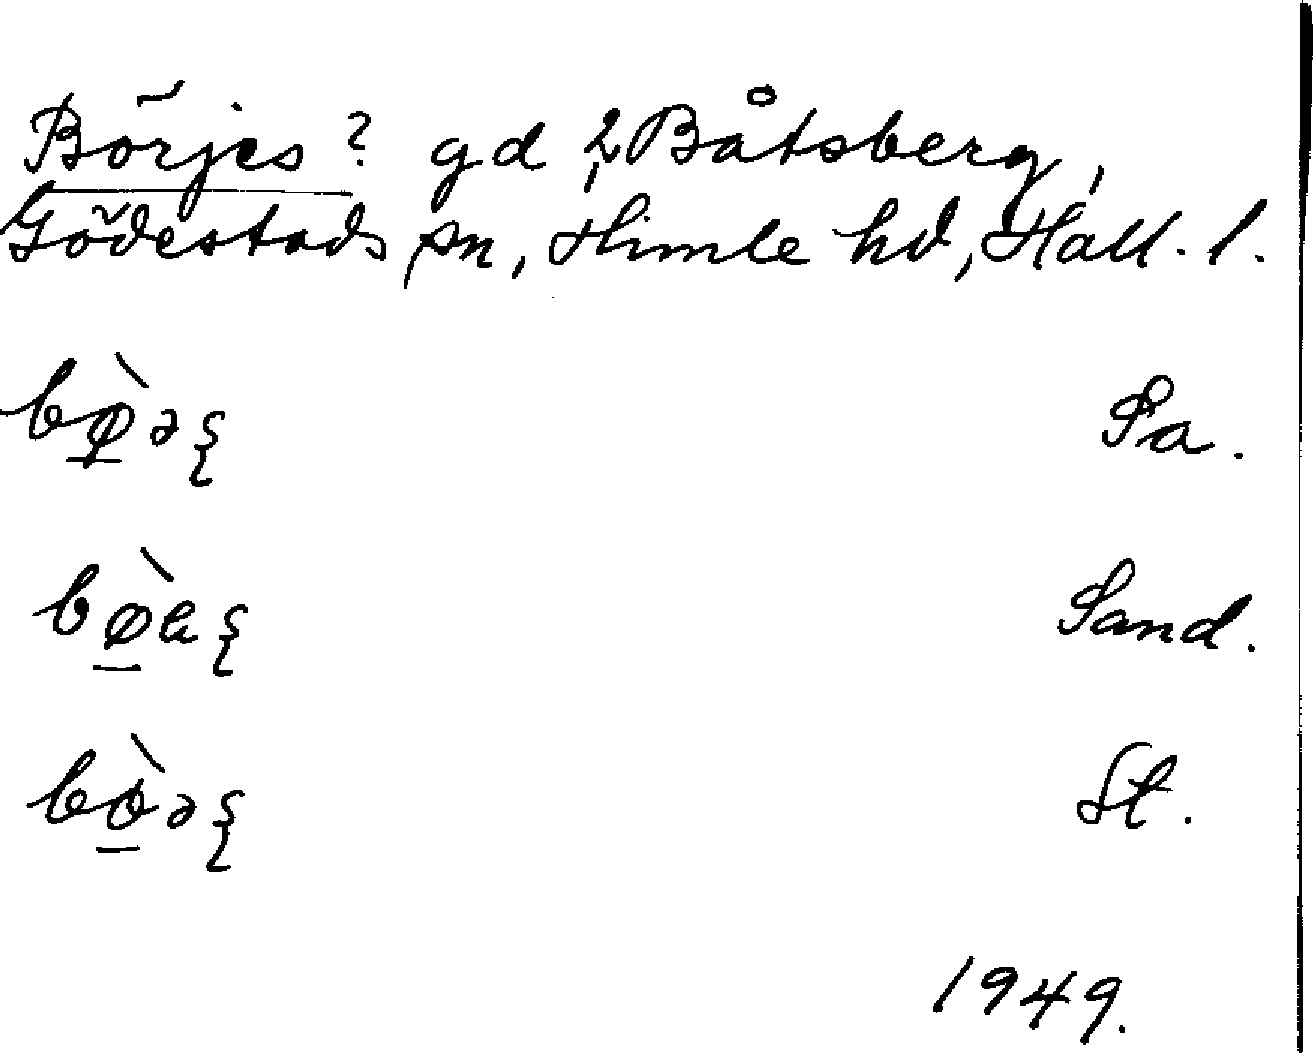 Börjes? gd 2, Båtsberg,
Gödestads sn, Himle hd, Hall. l.
bø̱̀əʂ Sa.
bø̱̀ꞛʂ Sand.
bò̱əʂ St.
1949.